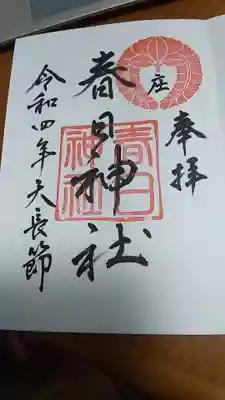 奉拝
庄
春日神社
春日神社
令和四年天長節